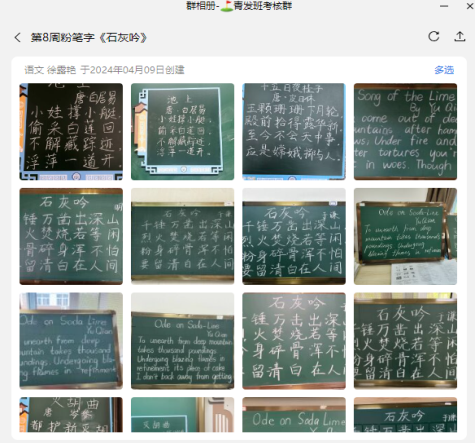 群相册-⛳青发班考核群
第8周粉笔字《石灰吟》
语文 徐露艳 于2024年04月09日创建
多选
池上
唐·白居易
小娃撑小艇,
偷采白莲回。
不解藏踪迹,
浮萍一道开。
池上
唐·白居易
小娃撑小艇,
偷采白莲回。
不解藏踪迹,
浮萍一道开。
玉颗珊珊下月轮,
殿前拾得露华新。
至今不会天中事,
应是嫦娥掷与人。
Song of the Lime
Yu Qian
come out of deep
untains after ham
ws. Under fire and
ter tortures you'r
in woes. Though
石灰吟
锤万凿出深山
火焚烧若等闲
骨碎身浑不怕
留清白在人间
石灰吟
千锤万凿出深山
烈火焚烧若等闲
粉身碎骨浑不怕
要留清白在人间
石灰吟
千锤万凿出深山
烈火焚烧若等闲
粉身碎骨浑不怕
要留清白在人间
Ode on Soda-Lime
Yu Qian
To unearth from deep
mountain takes thousand
poundings. Undergoing
Ode on Soda Lime
Yu Qian
unearth from deep
untain takes thousand
undings. Undergoing bla
g flames in
Ode on Soda-Lime
Yu Qian
To unearth from deep mountain
takes thousand poundings.
Undergoing blazing flames in
refinement its piece of cake
I don't back away from getting
石灰吟
锤万凿出深
火焚烧若等
身碎骨浑不
留清白在人
石灰吟
千锤万凿出深
烈火焚烧若等
粉身碎骨浑不
要留清白在人
Ode on Soda Lime
石灰吟